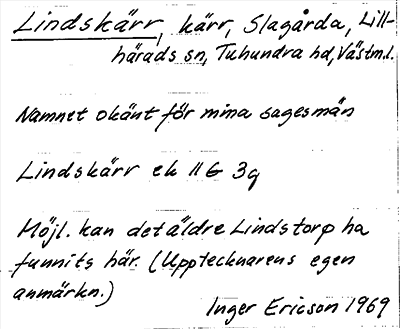 Lindskärr, kärr, Slagårda, Lill-
härads sn, Tuhundra hd, Västm.l.
Namnet okänt för mina sagesmän
Lindskärr ek 11 G 3g
Möjl. kan det äldre Lindstorp ha
funnits här. (Upptecknarens egen
anmärkn.)
Inger Ericson 1969